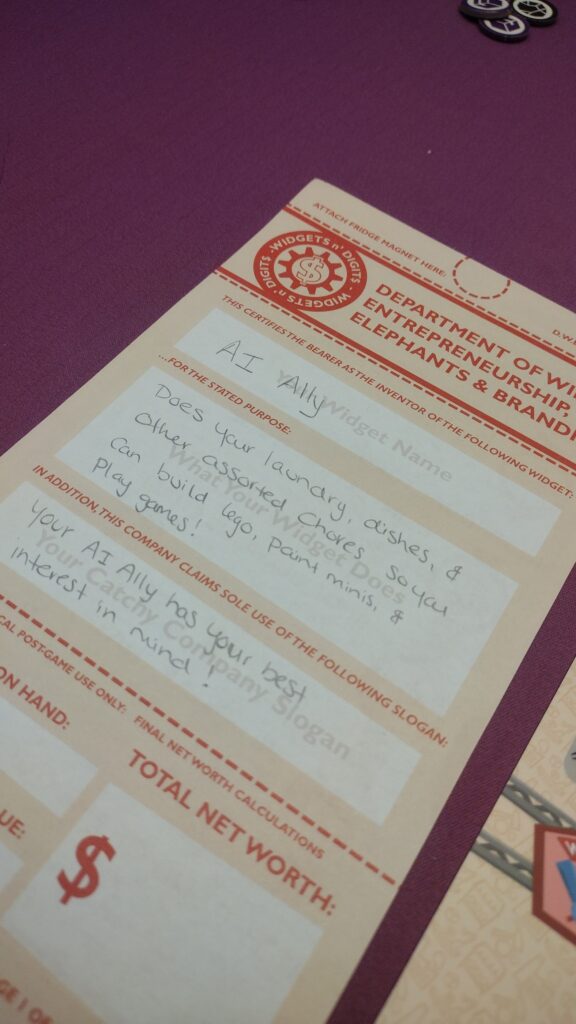 ATTACH FRIDGE MAGNET HERE:
WIDGETS n' DIGITS · WIDGETS n' DIGITS ·
$
DEPARTMENT OF
ENTREPRENEURSHIP,
ELEPHANTS &
THIS CERTIFIES THE BEARER AS THE INVENTOR OF THE FOLLOWING WIDGET:
Your Widget Name
AI Ally
...FOR THE STATED PURPOSE:
What Your Widget Does
Does your laundry, dishes, &
other assorted chores so you
can build lego, paint minis, &
play games!
IN ADDITION, THIS COMPANY CLAIMS SOLE USE OF THE FOLLOWING SLOGAN:
Your Catchy Company Slogan
Your AI Ally has your best
interest in mind!
POST-GAME USE ONLY: FINAL NET WORTH CALCULATIONS
ON HAND:
TOTAL NET WORTH:
$